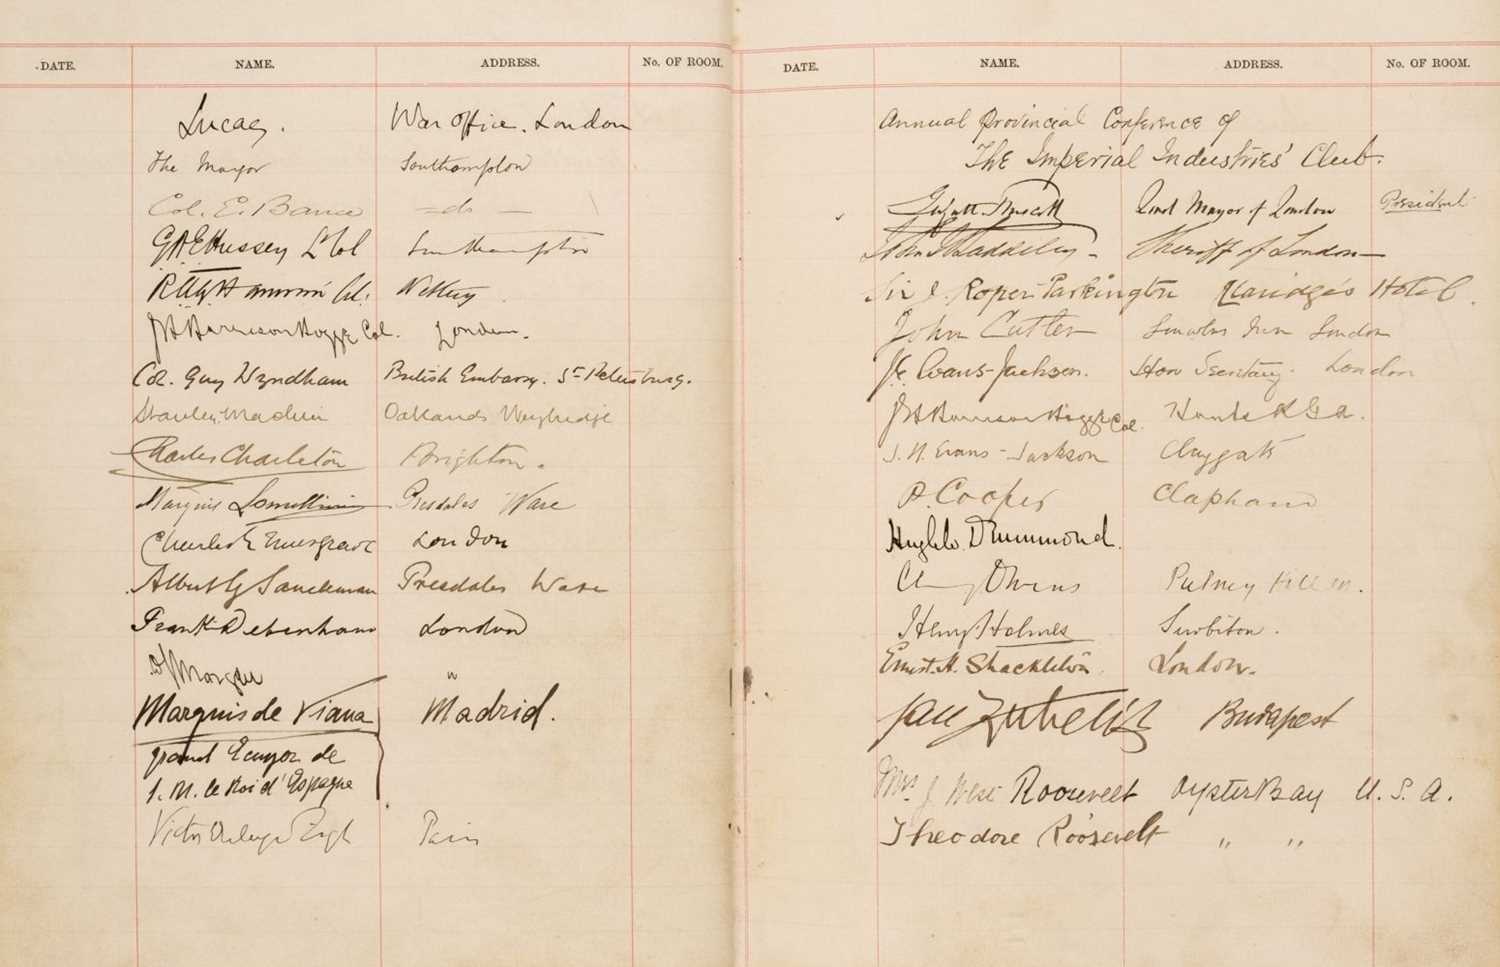 DATE. NAME. ADDRESS. No. OF ROOM.
Lucas. War Office. London
The Mayor Southampton
Col. E. Bance — do —
G.A.E. Hussey Lt Col Southampton
Col. Netley
J H Harrison Hogge Col. London.
Col. Guy Wyndham British Embassy. St Petersburg.
Stanley Machin Oaklands Weybridge
Charles Charleton Brighton.
Marquis Presdales Ware
London
Albert G Sandeman Presdales Ware
Frank Debenham London
Morgan "
Marquis de Viana Madrid.
grand Ecuyer de
S. M. le Roi d'Espagne
Victor Paris
DATE. NAME. ADDRESS. No. OF ROOM.
Annual Provincial Conference of
The Imperial Industries' Club.
Lord Mayor of London President
Sheriff of London
Sir J. Roper Parkington Claridge's Hotel.
John Cutler Lincolns Inn London
J.E. Evans-Jackson. Hon Secretary. London
J H Harrison Hogge Col. Hants R G A.
J. N. Evans-Jackson Claygate
P. Cooper Clapham
Hugh Drummond.
Owens Putney Hill
Henry Holmes Surbiton.
Ernest H. Shackleton. London.
Budapest
Mrs J West Roosevelt Oyster Bay U. S. A.
Theodore Roosevelt " "